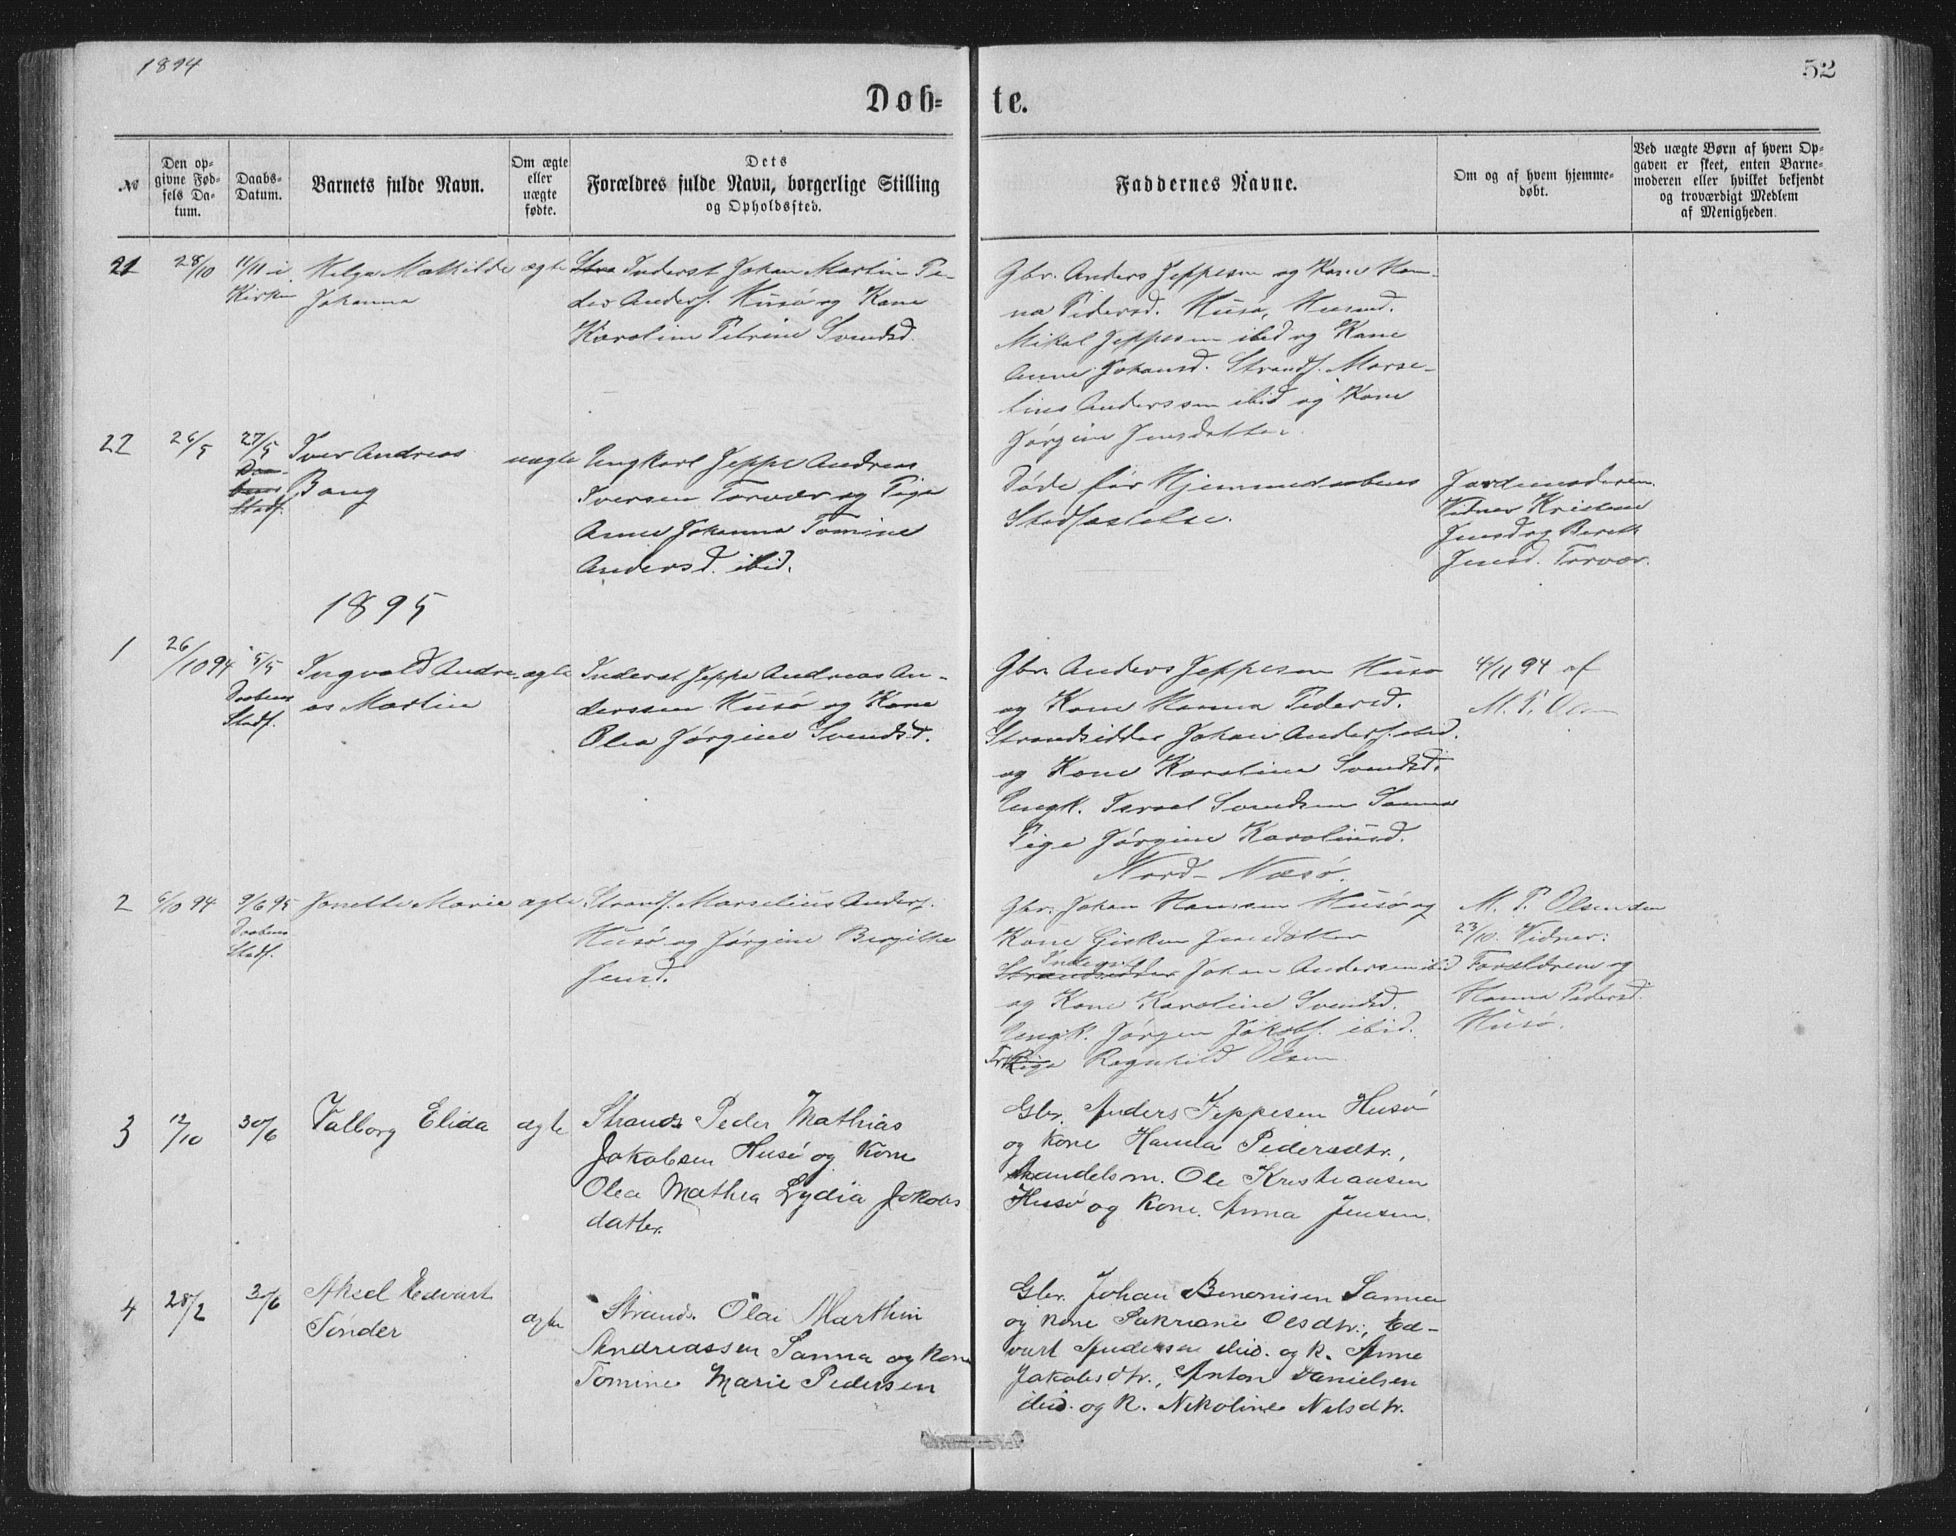 1894
52
Døb-
te.
№
Den op-
givne Fød-
sels Da-
tum.
Daabs-
Datum.
Barnets fulde Navn.
Om ægte
eller
uægte
fødte.
Dets
Forældres fulde Navn, borgerlige Stilling
og Opholdssted.
Faddernes Navne.
Om og af hvem hjemme-
døbt.
Ved uægte Børn af hvem Op-
gaven er skeet, enten Barne-
moderen eller hvilket bekjendt
og troværdigt Medlem
af Menigheden.
21
28/10
11/11 i
Kirken
Helga Mathilde
Johanna
ægte
Stra Inderst Johan Martin Pe-
der Anders. Husø og Kone
Karoline Petrine Svendsd.
Gbr. Anders Jeppesen og Kone Han-
na Pedersd. Husø, Husmd.
Mikal Jeppesen ibid og Kone
Anne Johansd. Strands. Marse-
lius Anderssen ibid og Kone
Jørgine Jensdatter.
22
26/5
27/5
Daa-
bens
Stadf.
Iver Andreas
Bang
uægte
Ungkarl Jeppe Andreas
Iversen Torvær og Pige
Anne Johanna Tomine
Andersd. ibid.
Døde før Hjemmedaabens
Stadfæstelse.
Jordemoderen.
Vidner Kristene
Jensd og Bereth
Jensd. Torvær.
1895
1
26/10 94
5/5
Daabens
Stadf.
Ingvald Andre-
as Martin
ægte
Inderst Jeppe Andreas An-
derssen Husø og Kone
Olea Jørgine Svendsd.
Gbr. Anders Jeppesen Husø
og Kone Hanna Pedersd.
Strandsidder Johan Anders. ibid.
og Kone Karoline Svendsd.
Ungk. Israel Svendsen Sanna
Pige Jørgine Karoliusd.
Nord-Næsø.
4/11 94 af
M. P. Olsen
2
6/10 94
9/6 95
Daabens
Stadf.
Jonette Marie
ægte
Strands. Marselius Anders.
Husø og Jørgine Bergithe
Jensd.
Gbr. Johan Hansen Husø og
Kone Gisken Jensdatter
Inderst
Strandsidder Johan Andersen ibid
og Kone Karoline Svendsd.
Ungk. Jørgen Jakobs. ibid.
Pige Ragnhild Olsen
M. P. Olsen den
23/10. Vidner:
Forældrene og
Hanna Pedersd.
Husø.
3
12/10
30/6
Valborg Elida
ægte
Strands. Peder Mathias
Jakobsen Husø og Kone
Olea Mathea Lydia Jakobs
datter.
Gbr. Anders Jeppesen Husø
og kone Hanna Pedersdtr.,
Handelsm. Ole Kristiansen
Husø og kone. Anna Jensen.
4
28/2
30/6
Aksel Edvart
Tønder
ægte
Strands. Olai Marthin
Andreassen Sanna og kone
Tomine Marie Pedersen
Gbr. Johan Benonisen Sanna
og kone Sakriane Olsdtr., Ed-
vart Andersen ibid. og k. Anne
Jakobsdtr., Anton Danielsen
ibid. og k. Nikoline Nilsdtr.